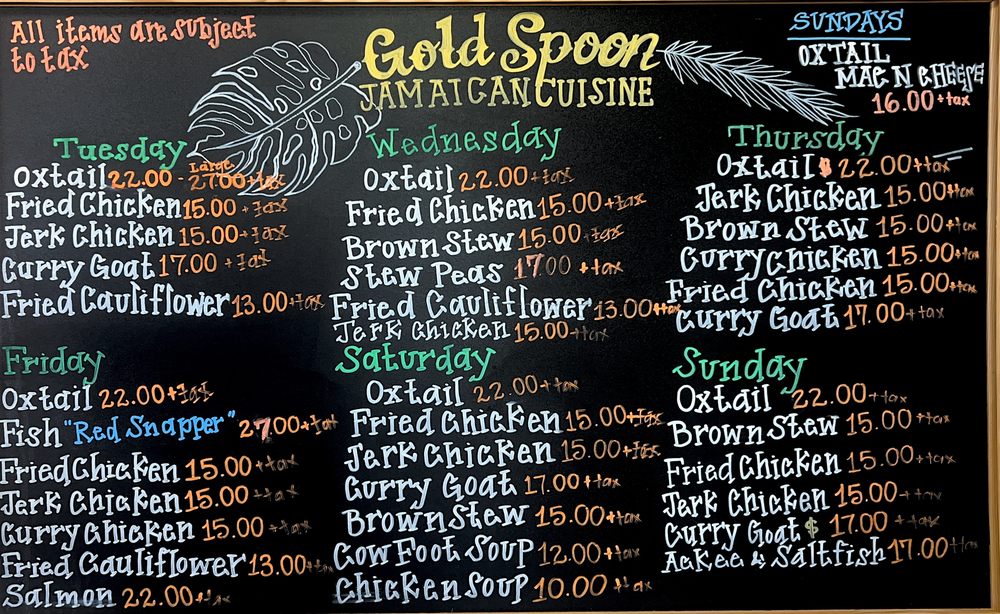 All items are subject
to tax
Gold Spoon
JAMAICAN CUISINE
SUNDAYS
OXTAIL
MAC N CHEESE
16.00+tax
Tuesday
Large
Oxtail 22.00 - 27.00+tax
Fried Chicken 15.00+tax
Jerk Chicken 15.00+tax
Curry Goat 17.00+tax
Fried Cauliflower 13.00+tax
Wednesday
Oxtail 22.00+tax
Fried Chicken 15.00+tax
Brown Stew 15.00+tax
Stew Peas 17.00+tax
Fried Cauliflower 13.00+tax
Jerk Chicken 15.00+tax
Thursday
Oxtail $ 22.00+tax
Jerk Chicken 15.00+tax
Brown Stew 15.00+tax
Curry Chicken 15.00+tax
Fried Chicken 15.00+tax
Curry Goat 17.00+tax
Friday
Oxtail 22.00+tax
Fish "Red Snapper" 27.00+tax
Fried Chicken 15.00+tax
Jerk Chicken 15.00+tax
Curry Chicken 15.00+tax
Fried Cauliflower 13.00+tax
Salmon 22.00+tax
Saturday
Oxtail 22.00+tax
Fried Chicken 15.00+tax
Jerk Chicken 15.00+tax
Curry Goat 17.00+tax
Brown Stew 15.00+tax
Cow Foot Soup 12.00+tax
Chicken Soup 10.00+tax
Sunday
Oxtail 22.00+tax
Brown Stew 15.00+tax
Fried Chicken 15.00+tax
Jerk Chicken 15.00+tax
Curry Goat $ 17.00+tax
Ackee & Saltfish 17.00+tax